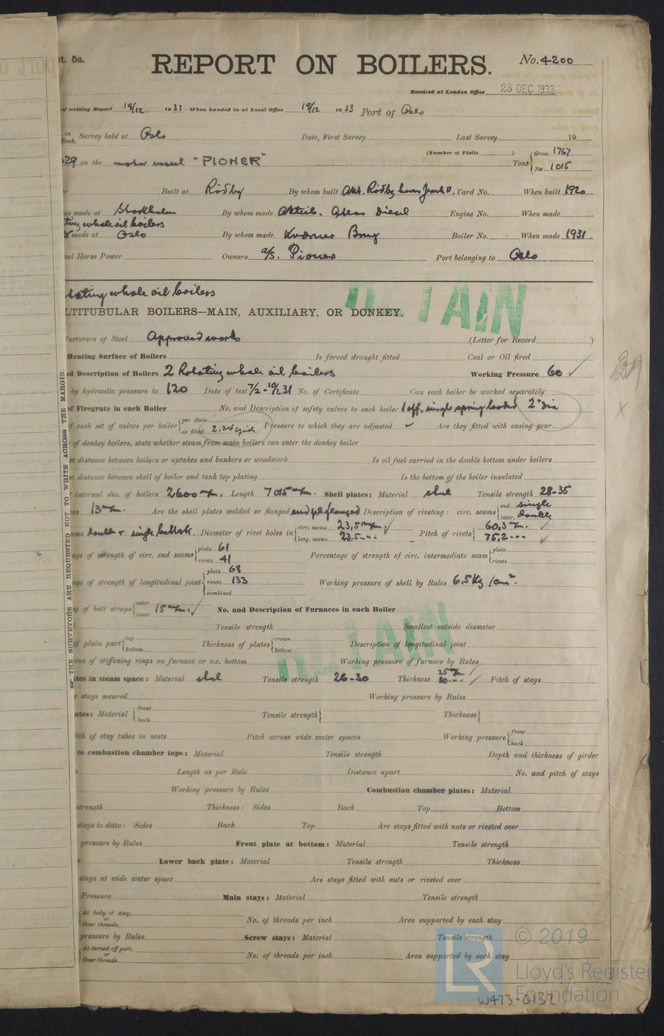 pt. 5a.
REPORT ON BOILERS.
No. 4200
Received at London Office 23 DEC 1933
of writing Report 19/12 1933 When handed in at Local Office 19/12 1933 Port of Oslo
in Book. Survey held at Oslo Date, First Survey Last Survey 19
(Number of Visits )
29 on the motor vessel "PIONER" Tons { Gross 1767 Net 1015
Built at Rödby By whom built Akt. Rödby Yard No. When built 1920
made at Stockholm By whom made Aktieb. Atlas Diesel Engine No. When made
rotating whale oil boilers
made at Oslo By whom made Kværner Brug Boiler No. When made 1931
Horse Power Owners A/S. Pioner Port belonging to Oslo
rotating whale oil boilers
RETAIN
LTITUBULAR BOILERS—MAIN, AUXILIARY, OR DONKEY.
facturers of Steel Approved works (Letter for Record )
Heating Surface of Boilers Is forced draught fitted Coal or Oil fired
d Description of Boilers 2 Rotating whale oil boilers Working Pressure 60 ✓
by hydraulic pressure to 120 Date of test 7/2-19/2.31 No. of Certificate Can each boiler be worked separately
of Firegrate in each Boiler No. and Description of safety valves to each boiler 1 off, single spring loaded 2" dia
of each set of valves per boiler { per Rule as fitted 2,24 Pressure to which they are adjusted ✓ Are they fitted with easing gear
of donkey boilers, state whether steam from main boilers can enter the donkey boiler
distance between boilers or uptakes and bunkers or woodwork Is oil fuel carried in the double bottom under boilers
distance between shell of boiler and tank top plating Is the bottom of the boiler insulated
internal dia. of boilers 2600 mm. Length 7015 mm. Shell plates: Material steel Tensile strength 28-35
13 mm. Are the shell plates welded or flanged end pl. flanged Description of riveting: circ. seams { end single inter. double
double & single buttstr. Diameter of rivet holes in { circ. seams 23,5 mm long. seams 23,5 --- Pitch of rivets { 60,3 mm 75,2 ---
age of strength of circ. end seams { plate 61 rivets 41 Percentage of strength of circ. intermediate seam { plate rivets
ge of strength of longitudinal joint { plate 68 rivets 133 combined Working pressure of shell by Rules 6.5 Kg/cm².
of butt straps { outer inner 15 mm. ✓ No. and Description of Furnaces in each Boiler
Tensile strength Smallest outside diameter
of plain part { top bottom Thickness of plates { crown bottom Description of longitudinal joint
ons of stiffening rings on furnace or c.c. bottom Working pressure of furnace by Rules
RETAIN
tes in steam space: Material steel Tensile strength 26-30 Thickness 25 mm 20 --- Pitch of stays
stays secured Working pressure by Rules
ates: Material { front back Tensile strength { Thickness {
tch of stay tubes in nests Pitch across wide water spaces Working pressure { front back
to combustion chamber tops: Material Tensile strength Depth and thickness of girder
Length as per Rule Distance apart No. and pitch of stays
Working pressure by Rules Combustion chamber plates: Material
strength Thickness: Sides Back Top Bottom
stays to ditto: Sides Back Top Are stays fitted with nuts or riveted over
pressure by Rules Front plate at bottom: Material Tensile strength
Lower back plate: Material Tensile strength Thickness
stays at wide water space Are stays fitted with nuts or riveted over
Pressure Main stays: Material Tensile strength
At body of stay, or Over threads No. of threads per inch Area supported by each stay
pressure by Rules Screw stays: Material Tensile strength
At turned off part, or Over threads No. of threads per inch Area supported by each stay
THE SURVEYORS ARE REQUESTED NOT TO WRITE ACROSS THE MARGIN.
LR
© 2019
Lloyd's Register
Foundation
W473-0132